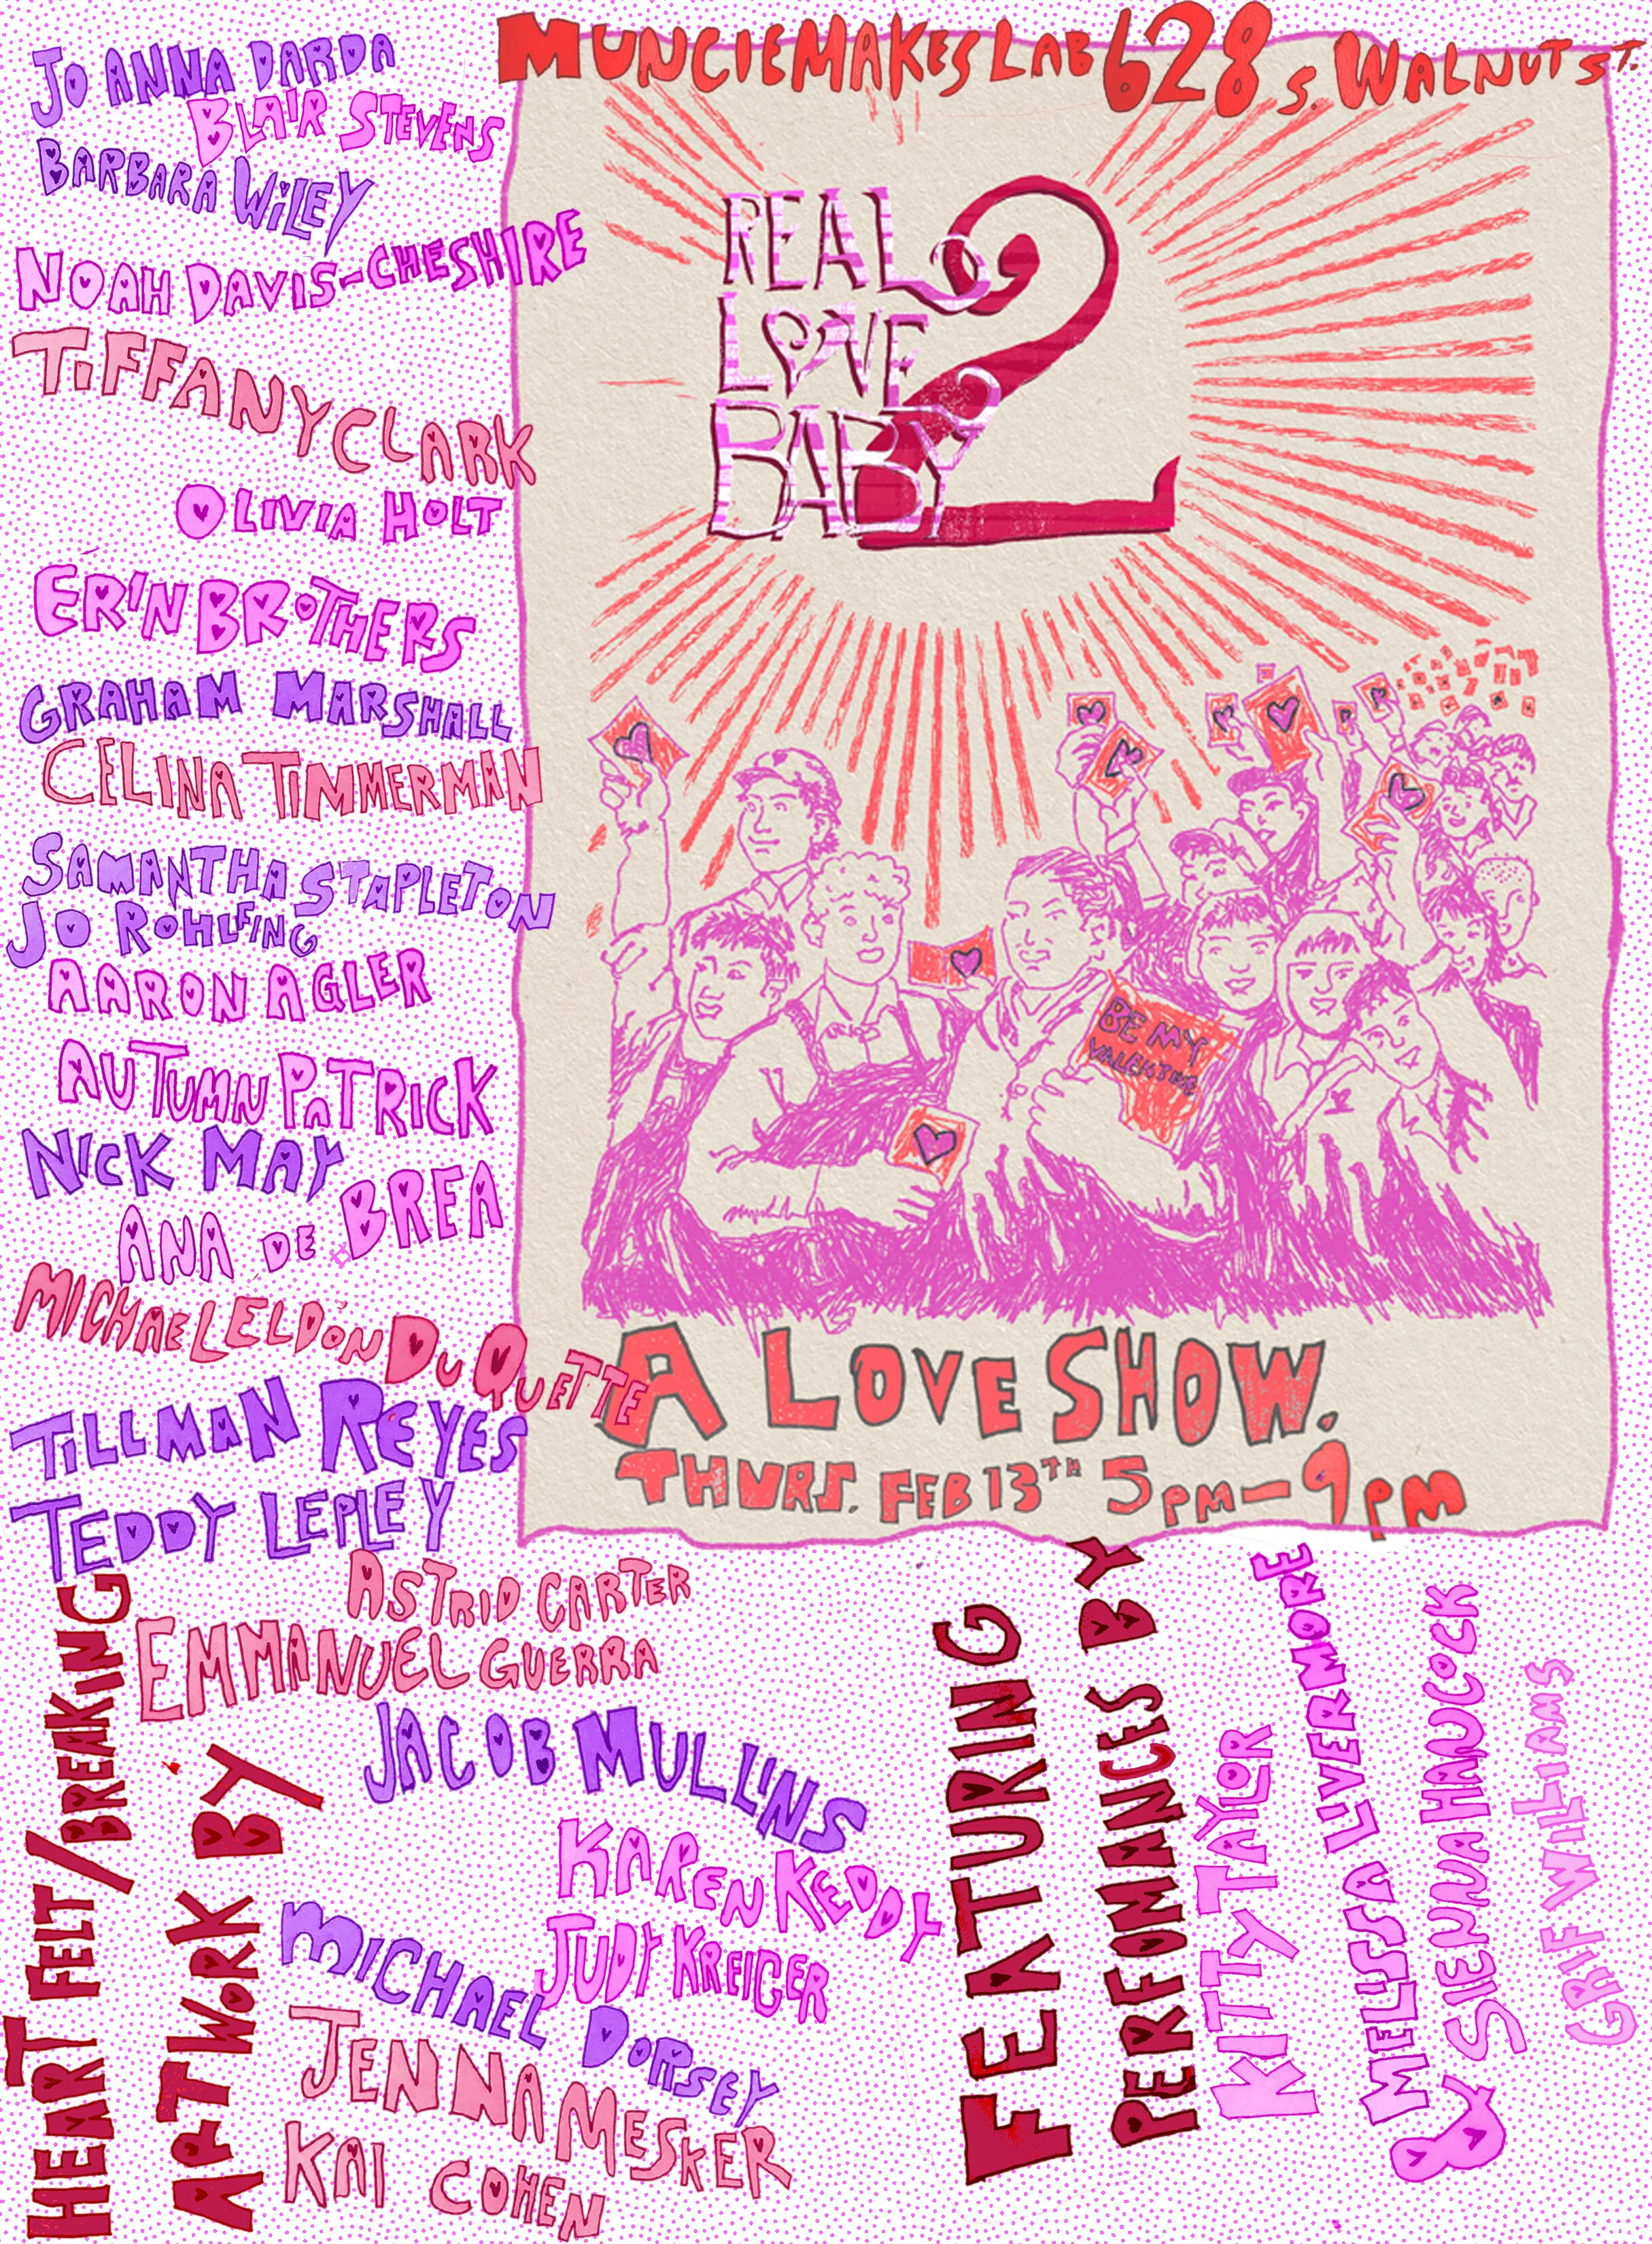 MUNCIEMAKES LAB 628 S. WALNUT ST.
REAL
LOVE
BABY
2
BE MY
VALENTINE
A LOVE SHOW.
THURS. FEB 13TH 5PM-9PM
JO ANNA DARDA
BLAIR STEVENS
BARBARA WILEY
NOAH DAVIS-CHESHIRE
TIFFANY CLARK
OLIVIA HOLT
ERIN BROTHERS
GRAHAM MARSHALL
CELINA TIMMERMAN
SAMANTHA STAPLETON
JO ROHLFING
AARON AGLER
AUTUMN PATRICK
NICK MAY
ANA DE BREA
MICHAEL ELDON DUQUETTE
TILLMAN REYES
TEDDY LEPLEY
ASTRID CARTER
EMMANUEL GUERRA
JACOB MULLINS
KAREN KEDDY
JUDY KREIGER
MICHAEL DORSEY
JENNA MESKER
KAI COHEN
HEART FELT/BREAKING
ARTWORK BY
FEATURING
PERFOMANCES BY
KITTY TAYLOR
MELISSA LIVERMORE
& SIENNA HANCOCK
GRIF WILLIAMS